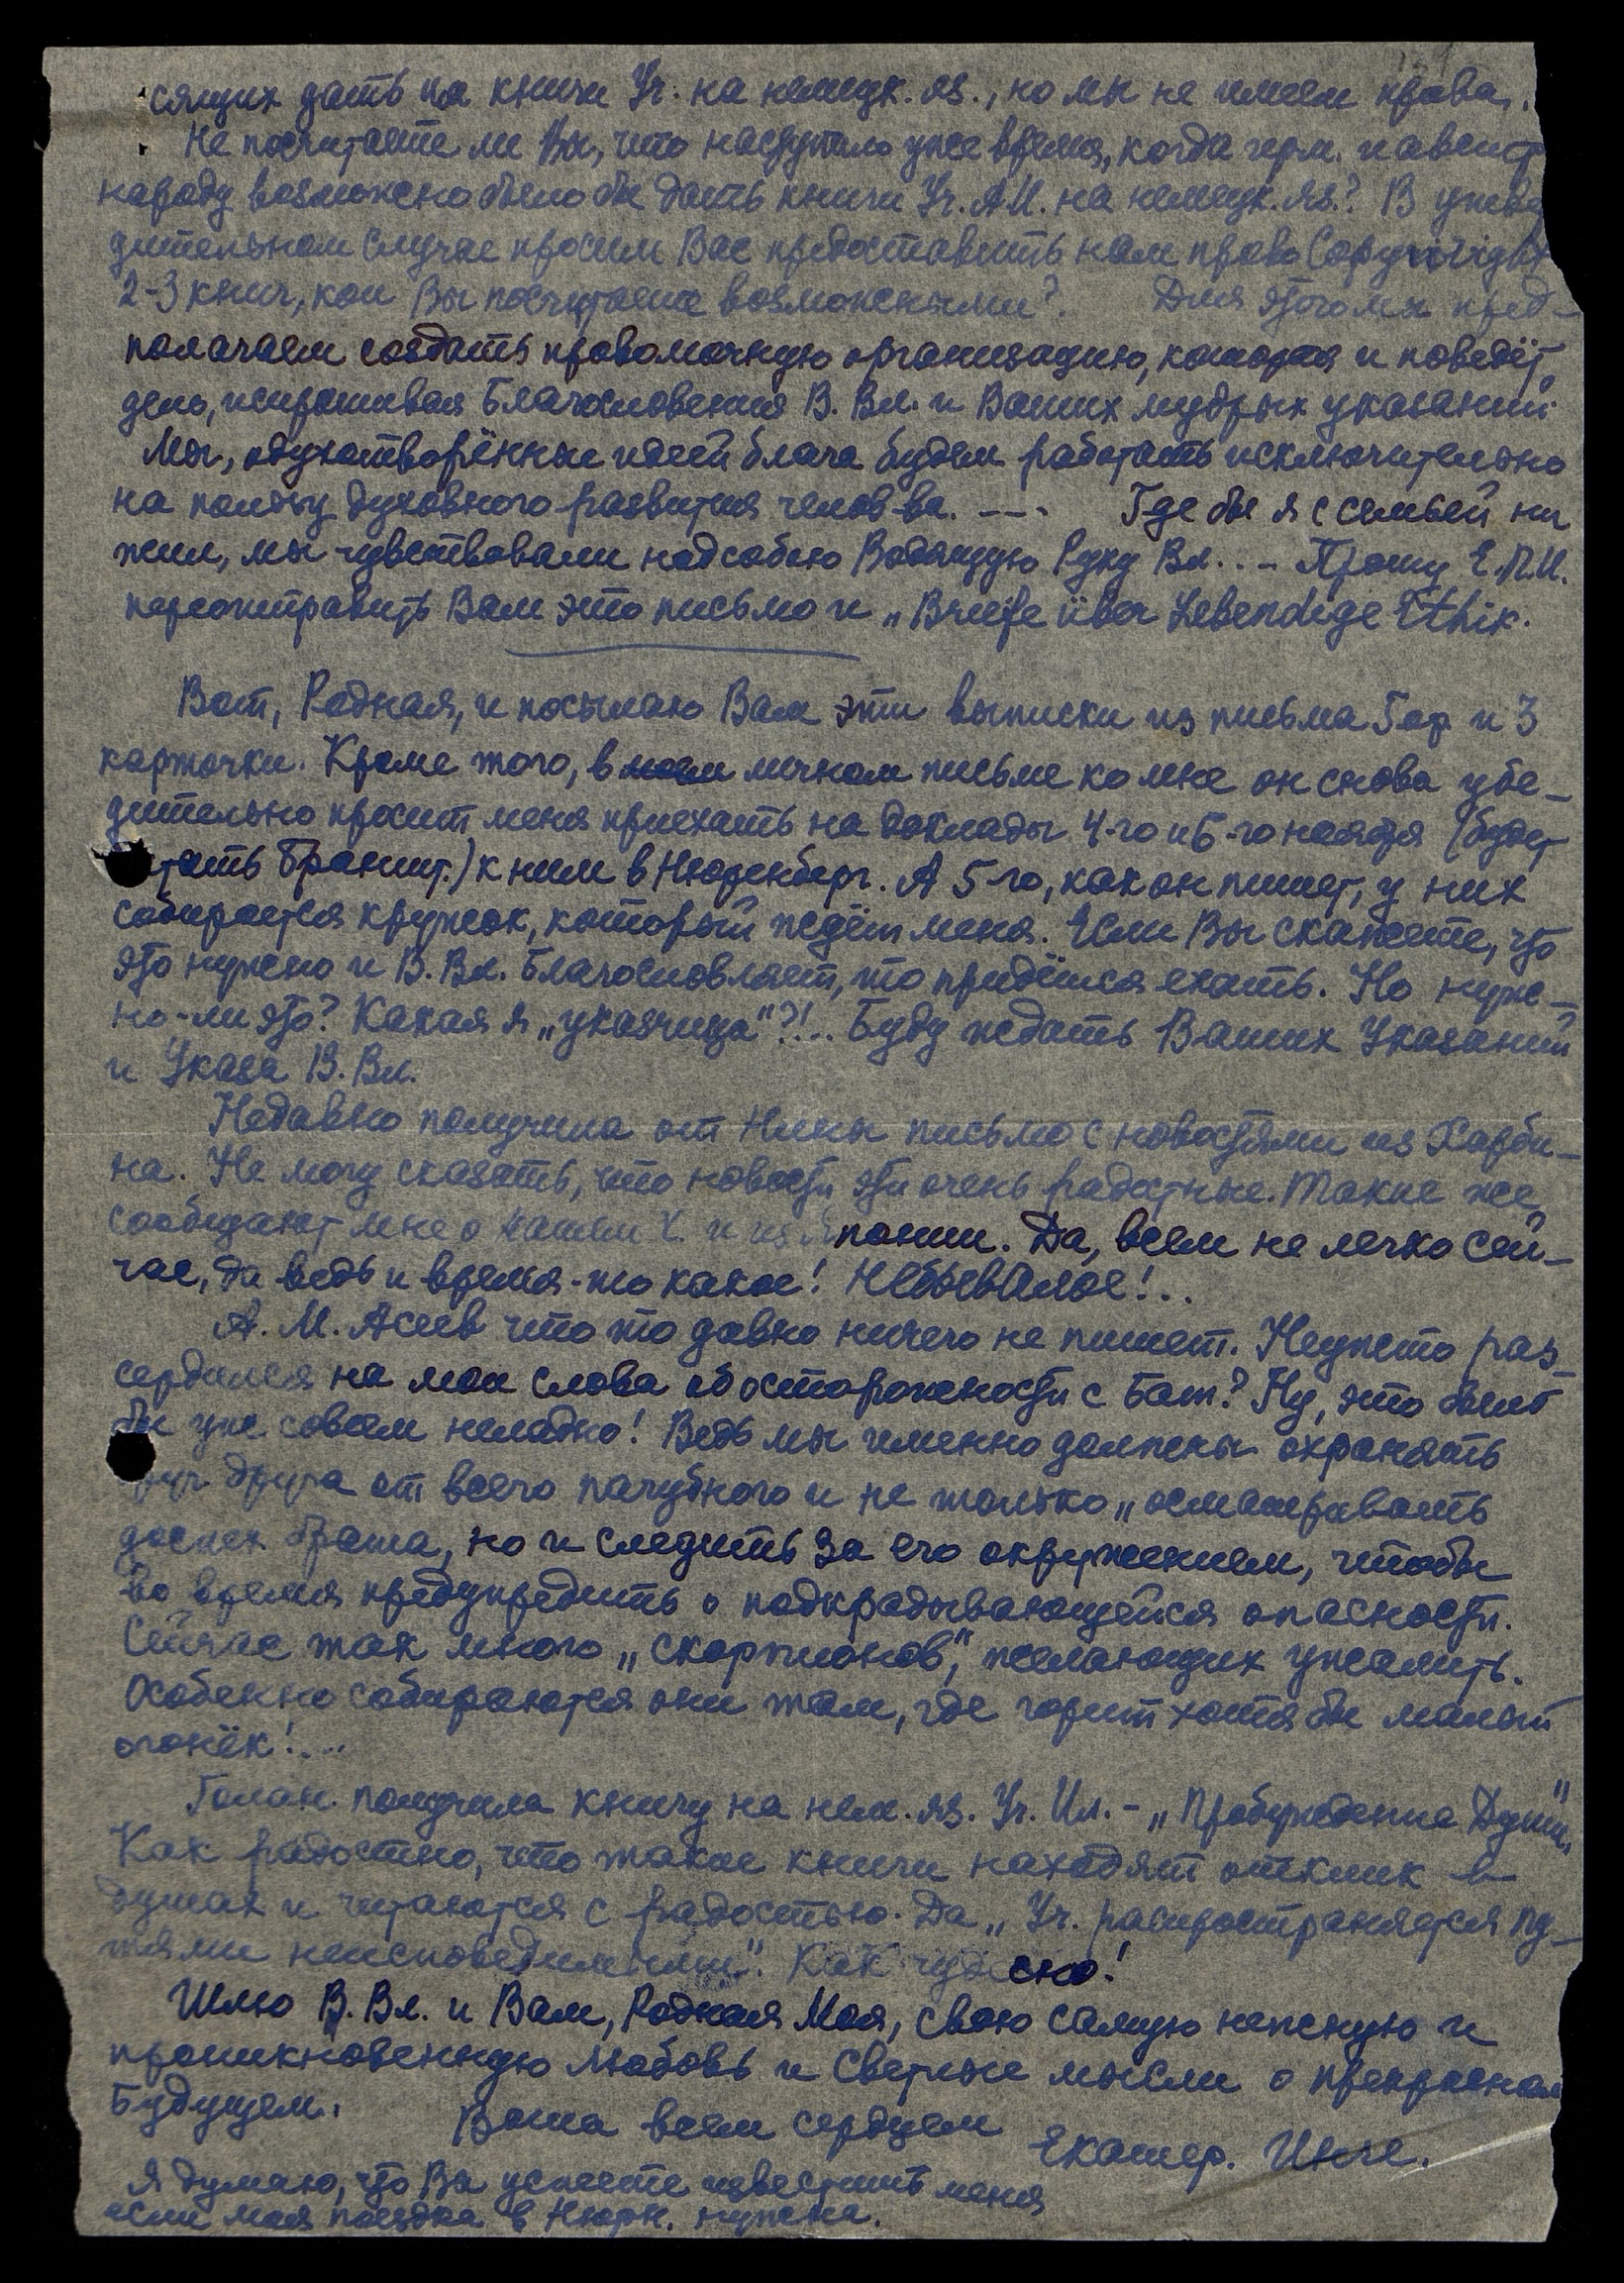 сящих дать им книги Уч. на немецк. яз., но мы не имеем права.
Не посчитаете ли Вы, что наступило уже время, когда герм. и австр
народу возможно было бы дать книги Уч. А.И. на немецк. яз.? В утвер
дительном случае просим Вас предоставить нам право Copyright
2-3 книг, кои Вы посчитаете возможными? Для этого мы пред-
полагаем создать правомочную организацию, которая и поведёт
дело, испрашивая Благословения В. Вл. и Ваших мудрых указаний.
Мы, одухотворённые идеей блага будем работать исключительно
на пользу духовного развития челов-ва. --- Где бы я с семьей ни
жил, мы чувствовали над собою Водящую Руку Вл... - Прошу Е.П.И.
переотправить Вам это письмо и „Briefe über Lebendige Ethik.
Вот, Родная, и посылаю Вам эти выписки из письма Гор и 3
карточки. Кроме того, в личном письме ко мне он снова убе-
дительно просит меня приехать на доклады 4-го и 6-го ноября (будет
тать Гранит.) к ним в Нюренберг. А 5-го, как он пишет, у них
собирается кружок, который ждёт меня. Если Вы скажете, что
это нужно и В. Вл. Благословляет, то придётся ехать. Но нуж-
но-ли это? Какая я „указчица"?!.. Буду ждать Ваших Указаний
и Указа В. Вл.
Недавно получила от Нины письмо с новостями из Харби-
на. Не могу сказать, что новости эти очень радостные. Такие же
сообщают мне о нашем Х. и из Японии. Да, всем не легко сей-
час, да ведь и время-то какое! Небывалое!..
А. М. Асеев что то давно ничего не пишет. Неужто раз-
сердился на мои слова об осторожности с Бат? Ну, это было
бы уже совсем неладно! Ведь мы именно должны охранять
друг друга от всего пагубного и не только „осматривать
доспех брата, но и следить за его окружением, чтобы
во время предупредить о подкрадывающейся опасности.
Сейчас так много „скорпионов", желающих ужалить.
Особенно собираются они там, где горит хотя бы малый
огонёк!...
Голан. получила книгу на нем. яз. Уч. Ил. - „Пробуждение Души".
Как радостно, что такие книги находят отклик в
душах и читаются с радостью. Да „Уч. распространяется пу-
тями неисповедимыми". Как чудесно!
Шлю В. Вл. и Вам, Родная Моя, свою самую нежную и
проникновенную Любовь и Светлые мысли о прекрасном
Будущем. Ваша всем сердцем Екатер. Инге.
Я думаю, что Вы успеете известить меня
если моя поездка в Нюрн. нужна.